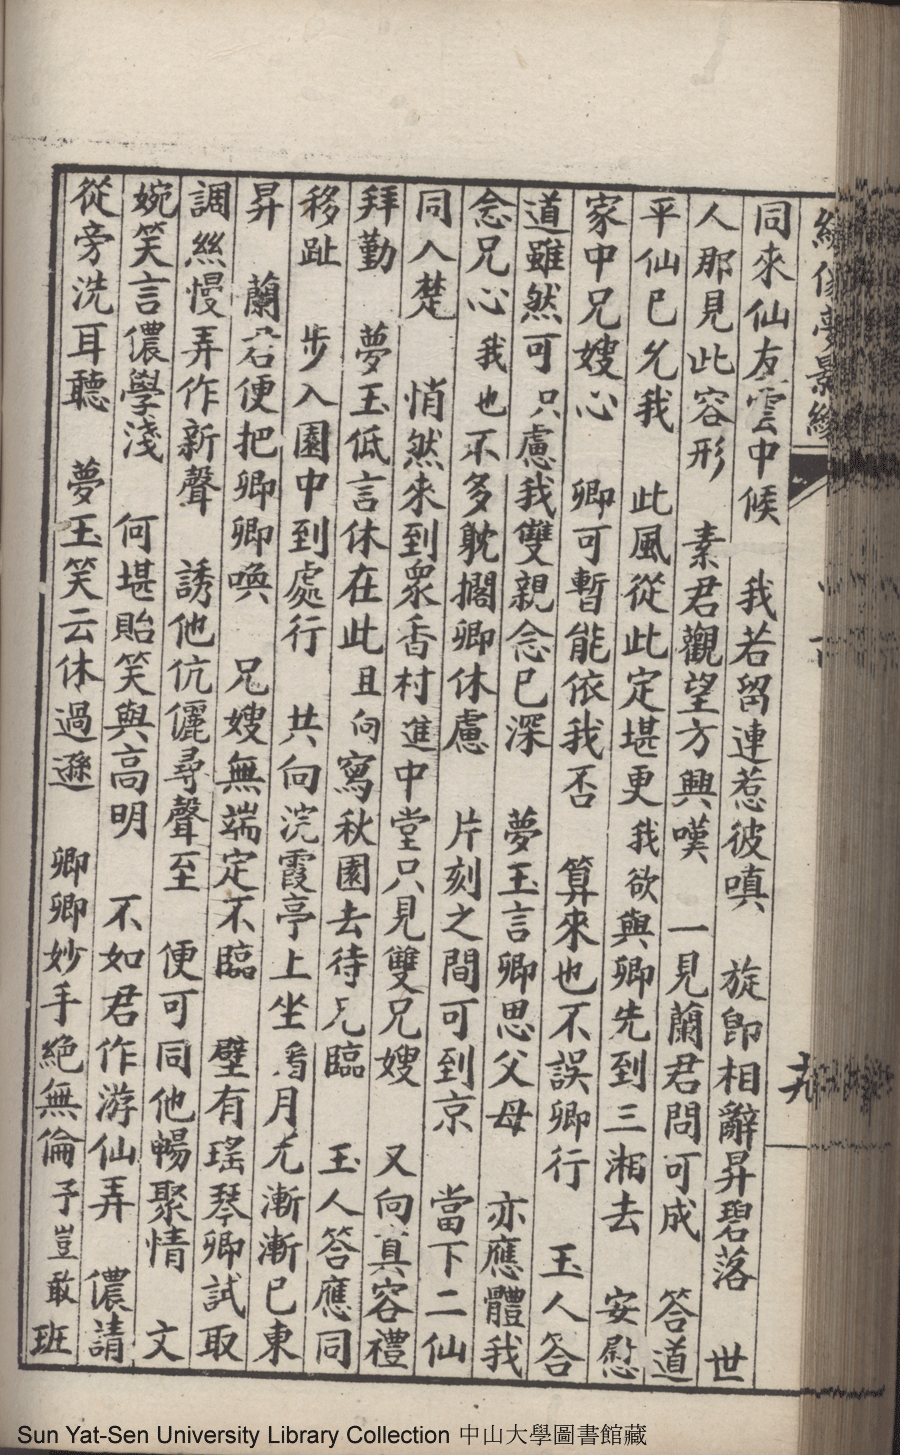 同來仙友雲中候　我若留連惹彼嗔　旋卽相辭昇碧落　世
人那見此容形　素君觀望方興嘆　一見蘭君問可成　答道
平仙已允我　此風從此定堪更　我欲與卿先到三湘去　安慰
家中兄嫂心　卿可暫能依我否　算來也不誤卿行　玉人答
道雖然可　只慮我雙親念已深　夢玉言卿思父母　亦應體我
念兄心　我也不多躭擱卿休慮　片刻之間可到京　當下二仙
同入楚　悄然來到衆香村　進中堂只見雙兄嫂　又向眞容禮
拜勤　夢玉低言休在此　且向寫秋園去待兄臨　玉人答應同
移趾　步入園中到處行　共向浣霞亭上坐　看月光漸漸已東
昇　蘭君便把卿卿喚　兄嫂無端定不臨　壁有瑤琴卿試取
調絲慢弄作新聲　誘他伉儷尋聲至　便可同他暢聚情　文
婉笑言儂學淺　何堪貽笑與高明　不如君作游仙弄　儂請
從旁洗耳聽　夢玉笑云休過遜　卿卿妙手絕無倫　予豈敢班
Sun Yat-Sen University Library Collection 中山大學圖書館藏